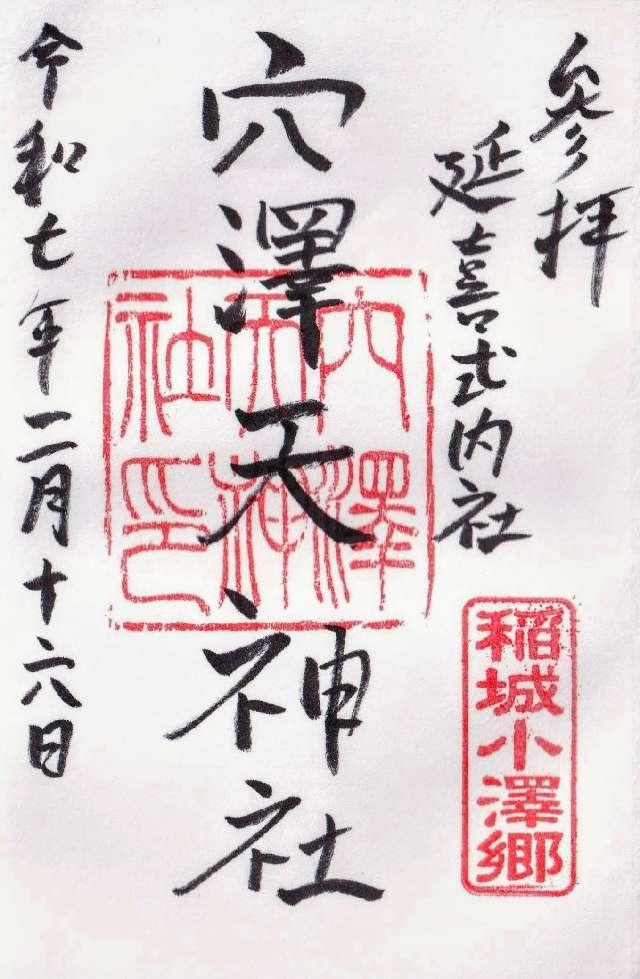 參拝
延喜式内社
稲城小澤郷
穴澤天神社
穴澤
天神
社印
令和七年二月十六日